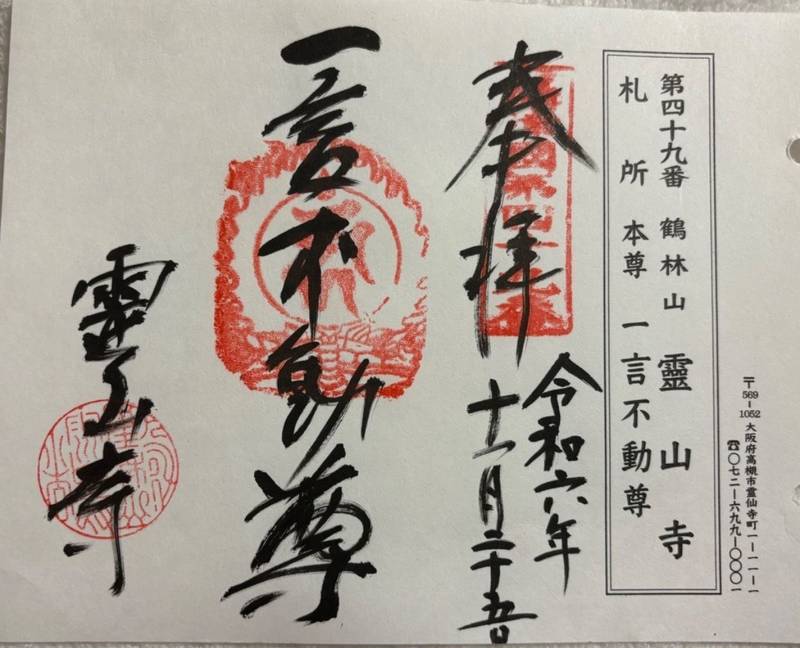 〒569-1052 大阪府高槻市霊仙寺町一-一一-一
☎〇七二-六九九-〇〇〇一
第四十九番 鶴林山 靈山寺
札所 本尊 一言不動尊
奉拝
令和六年
十一月二十五日
一言不動尊
靈山寺